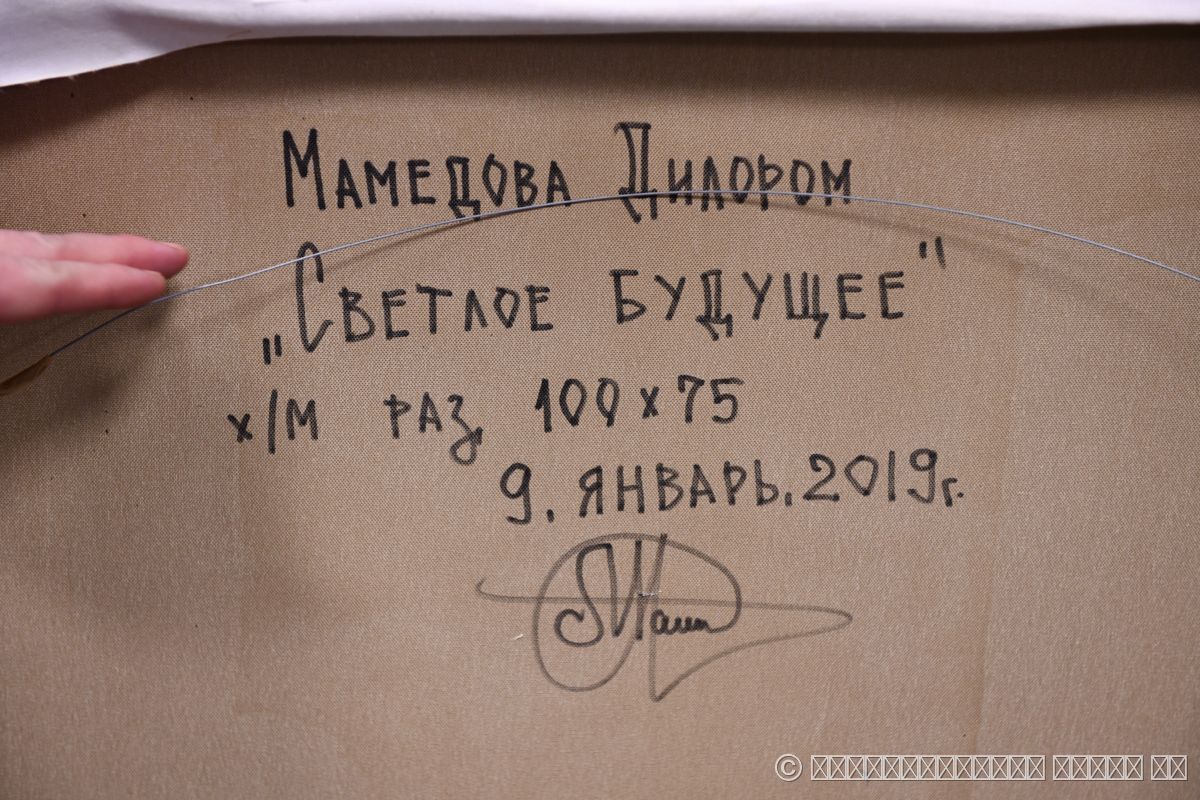 Мамедова Дилором
„Светлое будущее"
х/м раз, 100 х 75
9. январь. 2019 г.
©